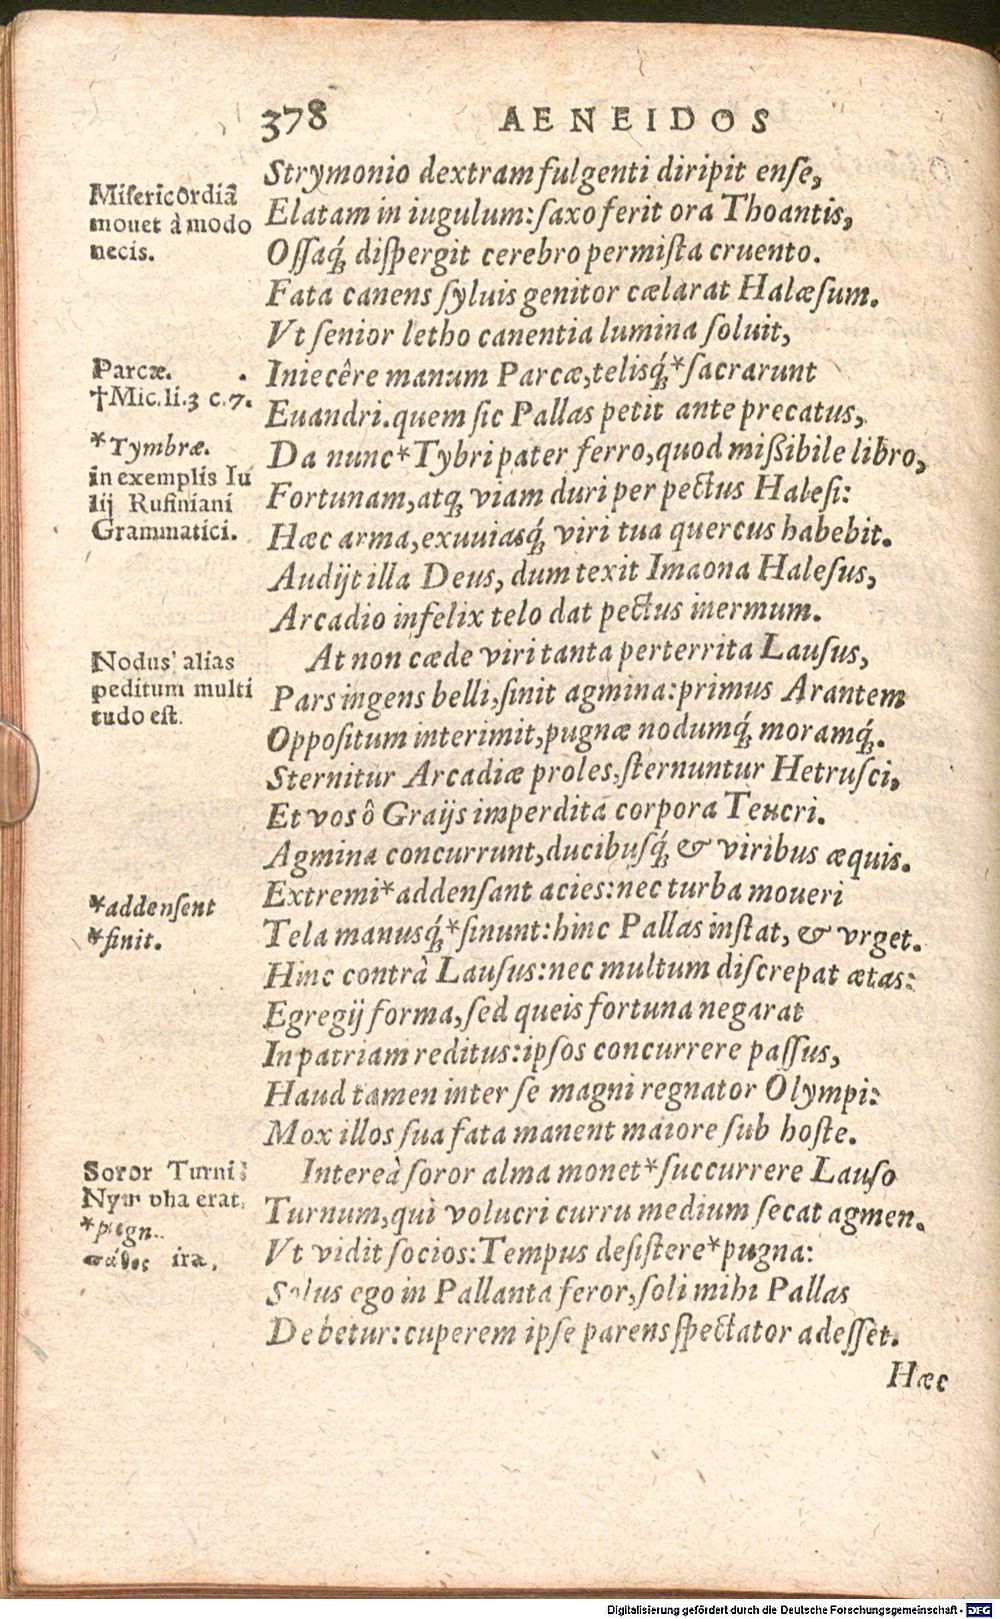 378 AENEIDOS
Strymonio dextram fulgenti diripit ense,
Misericordiã
mouet à modo
necis.
Elatam in iugulum: saxo ferit ora Thoantis,
Ossaq́; dispergit cerebro permista cruento.
Fata canens syluis genitor cælarat Halæsum.
Vt senior letho canentia lumina soluit,
Parcæ.
†Mic.li.3 c.7.
Iniecêre manum Parcæ, telisq́; *sacrarunt
Euandri. quem sic Pallas petit ante precatus,
*Tymbræ.
in exemplis Iu
lij Rufiniani
Grammatici.
Da nunc *Tybri pater ferro, quod mißibile libro,
Fortunam, atq; viam duri per pectus Halesi:
Hæc arma, exuuiasq́; viri tua quercus habebit.
Audijt illa Deus, dum texit Imaona Halesus,
Arcadio infelix telo dat pectus inermum.
Nodus alias
peditum multi
tudo est.
At non cæde viri tanta perterrita Lausus,
Pars ingens belli, sinit agmina: primus Arantem
Oppositum interimit, pugnæ nodumq́; moramq́;.
Sternitur Arcadiæ proles, sternuntur Hetrusci,
Et vos ô Graijs imperdita corpora Teucri.
Agmina concurrunt, ducibusq́; & viribus æquis.
*addensent
*sinit.
Extremi *addensant acies: nec turba moueri
Tela manusq́; *sinunt: hinc Pallas instat, & vrget.
Hinc contrà Lausus: nec multum discrepat ætas:
Egregij forma, sed queis fortuna negarat
In patriam reditus: ipsos concurrere passus,
Haud tamen inter se magni regnator Olympi:
Mox illos sua fata manent maiore sub hoste.
Soror Turni
erat.
*pugn..
πάθος ira,
Intereà soror alma monet *succurrere Lauso
Turnum, qui volucri curru medium secat agmen.
Vt vidit socios: Tempus desistere *pugna:
Solus ego in Pallanta feror, soli mihi Pallas
Debetur: cuperem ipse parens spectator adesset.
Hæc
Digitalisierung gefördert durch die Deutsche Forschungsgemeinschaft - DFG